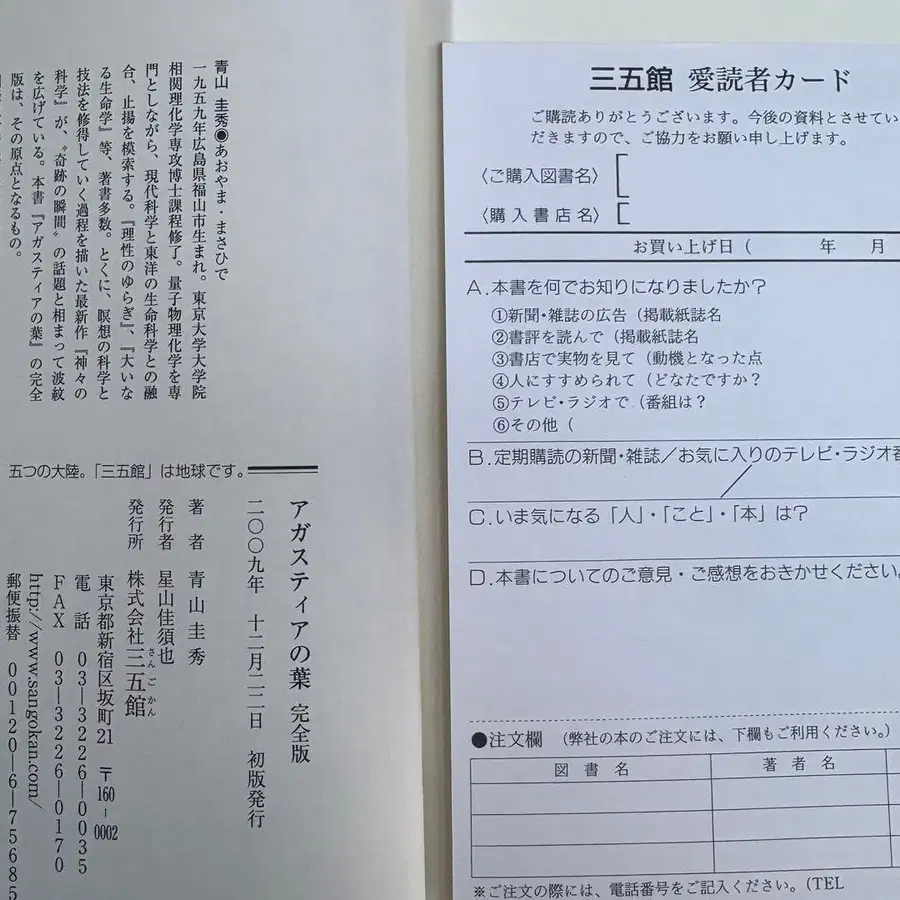 青山 圭秀◉あおやま・まさひで
一九五九年広島県福山市生まれ。東京大学大学院
相関理化学専攻博士課程修了。量子物理化学を専
門としながら、現代科学と東洋の生命科学との融
合、止揚を模索する。『理性のゆらぎ』、『大いな
る生命学』等、著書多数。とくに、瞑想の科学と
技法を修得していく過程を描いた最新作『神々の
科学』が、〝奇跡の瞬間〟の話題と相まって波紋
を広げている。本書『アガスティアの葉』の完全
版は、その原点となるもの。
五つの大陸。「三五館」は地球です。
アガスティアの葉 完全版
二〇〇九年 十二月二二日 初版発行
著者 青山圭秀
発行者 星山佳須也
発行所 株式会社三五館
さんごかん
東京都新宿区坂町21 〒160-0002
電話 03―3226―0035
FAX 03―3226―0170
http://www.sangokan.com/
郵便振替 00120―6―75685
三五館 愛読者カード
ご購読ありがとうございます。今後の資料とさせてい
だきますので、ご協力をお願い申し上げます。
〈ご購入図書名〉
〈購入書店名〉
お買い上げ日( 年 月
A.本書を何でお知りになりましたか?
①新聞・雑誌の広告(掲載紙誌名
②書評を読んで(掲載紙誌名
③書店で実物を見て(動機となった点
④人にすすめられて(どなたですか?
⑤テレビ・ラジオで(番組は?
⑥その他(
B.定期購読の新聞・雑誌/お気に入りのテレビ・ラジオ番
C.いま気になる「人」・「こと」・「本」は?
D.本書についてのご意見・ご感想をおきかせください。
●注文欄 (弊社の本のご注文には、下欄もご利用ください。)
図書名 著者名
※ご注文の際には、電話番号をご記入ください。(TEL